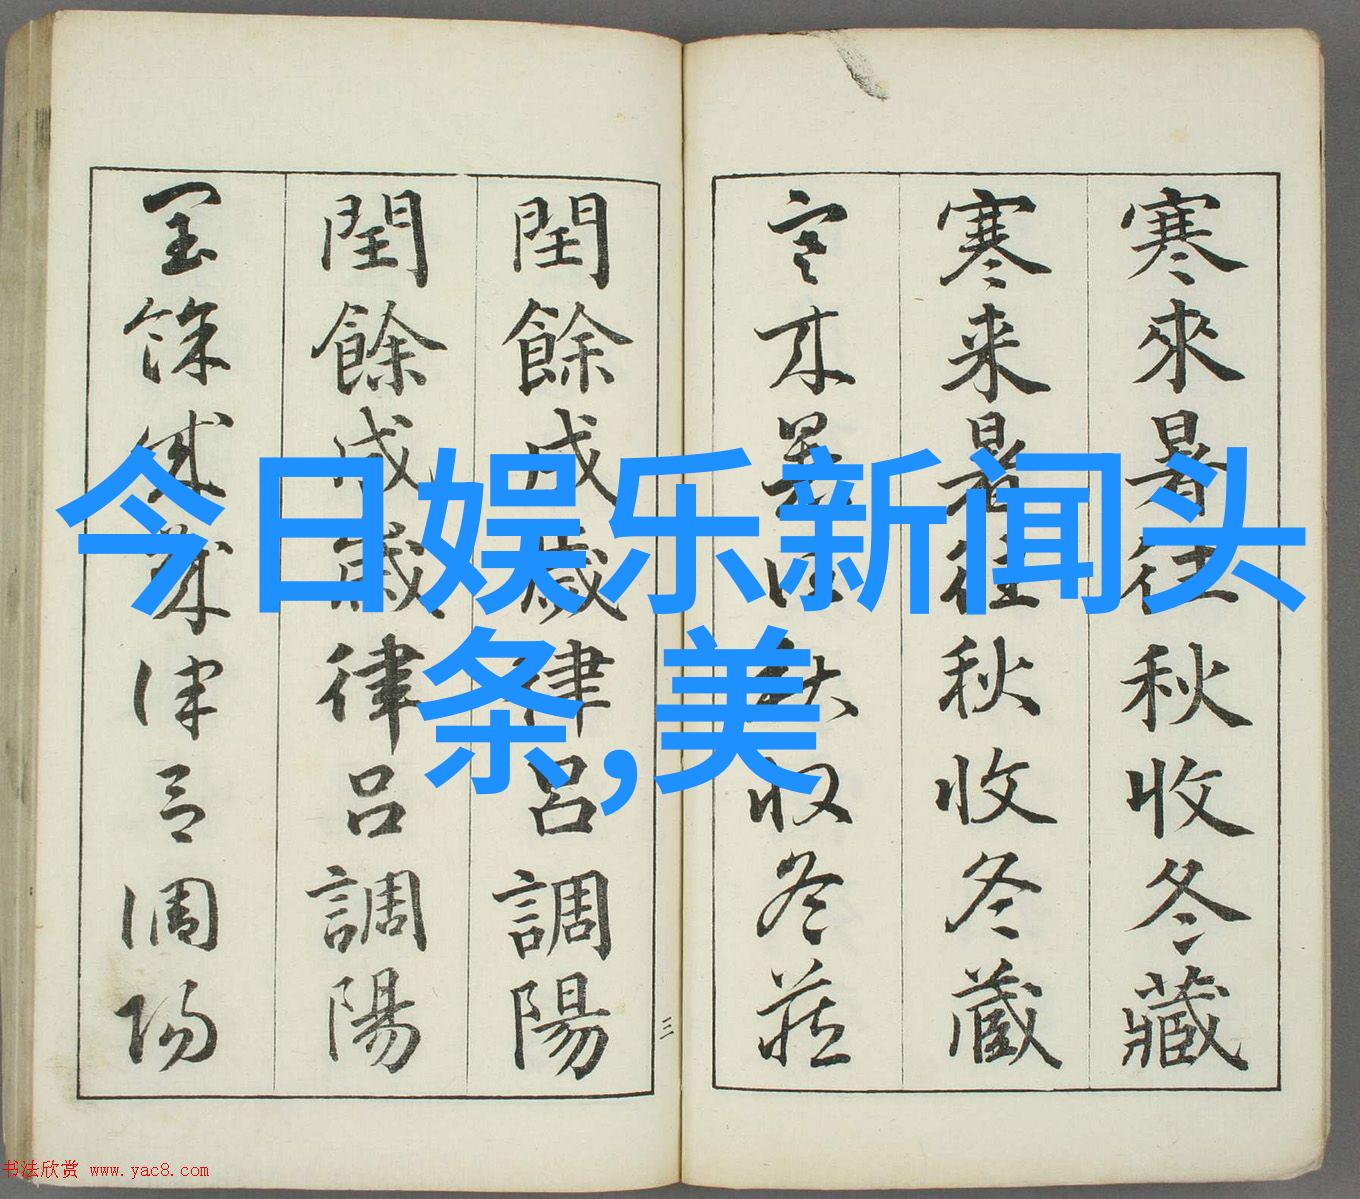 寒來暑往秋收冬藏
寒来暑往秋收冬蔵
寒来暑往秋収冬蔵
閏餘成歲律呂調陽
閏餘成歲律呂調陽
閏餘成歲律呂調陽
三
今日娱乐新闻头
条,美
书法欣赏 www.yac8.com